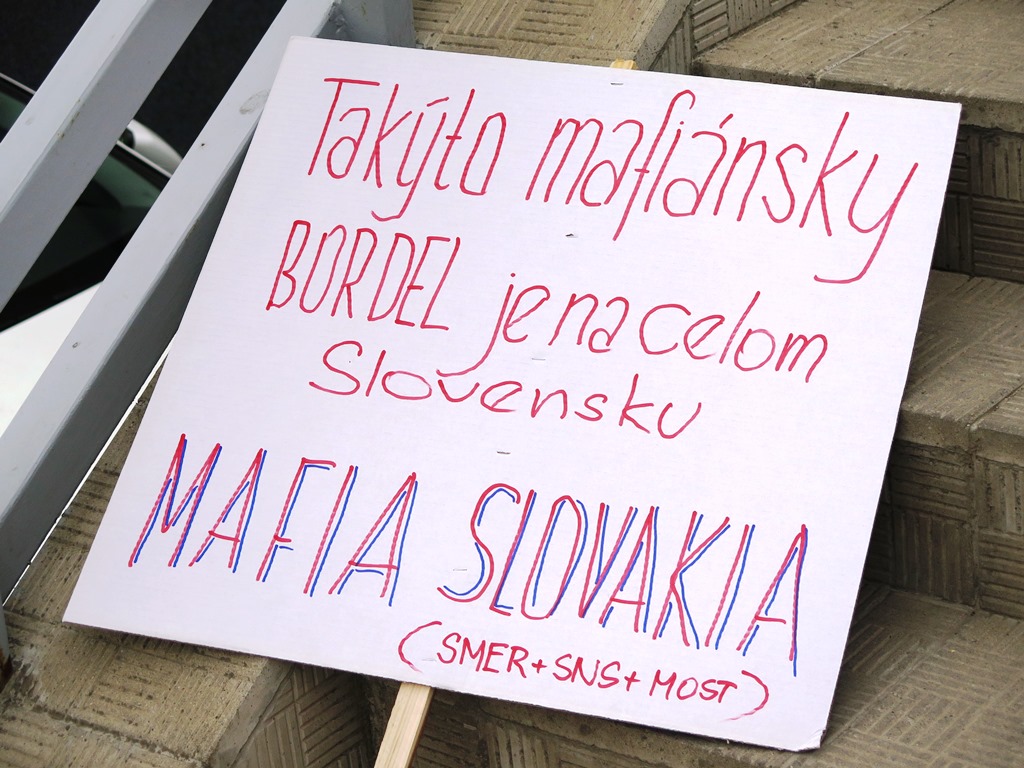 Takýto mafiánsky
BORDEL je na celom
Slovensku
MAFIA SLOVAKIA
(SMER+SNS+MOST)